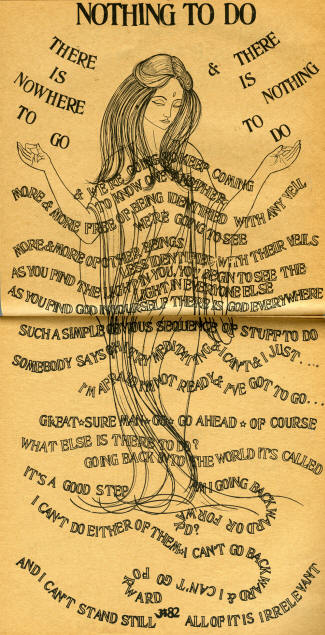 NOTHING TO DO
THERE
IS
NOWHERE
TO
GO
&
THERE
IS
NOTHING
TO
DO
& WE'RE GOING TO KEEP COMING
TO KNOW ONE ANOTHER
MORE & MORE FREE OF BEING IDENTIFIED WITH ANY VEIL
WE'RE GOING TO SEE
MORE & MORE OF OTHER BEINGS
LESS IDENTIFIED WITH THEIR VEILS
AS YOU FIND THE LIGHT IN YOU, YOU BEGIN TO SEE THE
LIGHT IN EVERYONE ELSE
AS YOU FIND GOD IN YOURSELF THERE IS GOD EVERYWHERE
SUCH A SIMPLE OBVIOUS SEQUENCE OF STUFF TO DO
SOMEBODY SAYS OH I TRY MEDITATION & I CAN'T & I JUST....
I'M AFRAID I'M NOT READY & I'VE GOT TO GO...
GREAT★SURE MAN★GO★GO AHEAD★OF COURSE
WHAT ELSE IS THERE TO DO?
GOING BACK INTO THE WORLD IT'S CALLED
IT'S A GOOD STEP
AM I GOING BACKWARD OR FORWARD?
I CAN'T DO EITHER OF THEM I CAN'T GO BACKWARD & I CAN'T GO FORWARD
AND I CAN'T STAND STILL
ALL OF IT IS IRRELEVANT
82